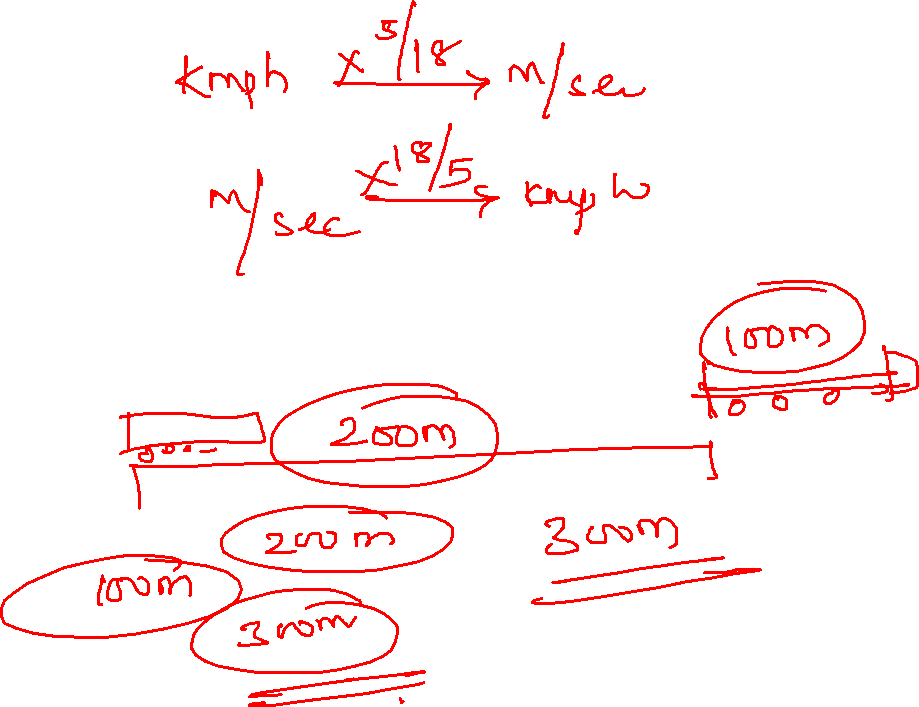 Kmph x 5/18 m/sec
m/sec x 18/5 kmph
100m
200m
200m 300m
100m
300m